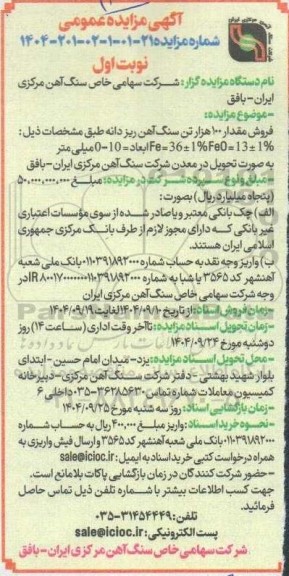 آگهی مزایده عمومی
شماره مزایده ۲۱-۰۱-۱-۰۲-۲۰۱-۱۴۰۴
نوبت اول
نام دستگاه مزایده گزار: شرکت سهامی خاص سنگ آهن مرکزی
ایران - بافق
-موضوع مزایده:
فروش مقدار ۱۰۰ هزار تن سنگ آهن ریز دانه طبق مشخصات ذیل:
Fe=36±1% FeO=13±1% ابعاد=0-10 میلی متر
به صورت تحویل در معدن شرکت سنگ آهن مرکزی ایران-بافق
-مبلغ و نوع سپرده شرکت در مزایده: مبلغ ۵۰.۰۰۰.۰۰۰.۰۰۰
(پنجاه میلیارد ریال) بصورت:
الف) چک بانکی معتبر و یا صادر شده از سوی مؤسسات اعتباری
غیر بانکی که دارای مجوز لازم از طرف بانک مرکزی جمهوری
اسلامی ایران هستند.
ب) واریز وجه نقد به حساب شماره ۰۱۱۰۳۹۱۸۹۲۰۰۰ بانک ملی شعبه
آهنشهر کد ۳۵۶۵ یا شبا به شماره
وجه شرکت سهامی خاص سنگ آهن مرکزی ایران
-زمان فروش اسناد: از تاریخ ۱۴۰۴/۰۹/۱۰ لغایت ۱۴۰۴/۰۹/۱۹
-زمان تحویل اسناد مزایده: تا آخر وقت اداری (ساعت ۱۴) روز
دوشنبه مورخ ۱۴۰۴/۰۹/۲۴
-محل تحویل اسناد مزایده: یزد- میدان امام حسین - ابتدای
بلوار شهید بهشتی - دفتر شرکت سنگ آهن مرکزی - دبیرخانه
کمیسیون معاملات شماره تماس: ۳۶۲۸۵۶۳۰-۰۳۵ داخلی ۶
-زمان بازگشایی اسناد: روز سه شنبه مورخ ۱۴۰۴/۰۹/۲۵
-نحوه خرید اسناد: واریز مبلغ ۴.۰۰۰.۰۰۰ ریال به حساب شماره
۰۱۱۰۳۹۱۸۹۲۰۰۰ بانک ملی شعبه آهنشهر کد ۳۵۶۵ و ارسال فیش واریزی به
همراه درخواست کتبی خرید اسناد به ایمیل: sale@icioc.ir
-حضور شرکت کنندگان در زمان بازگشایی پاکات بلامانع است.
جهت کسب اطلاعات بیشتر با شماره تلفن ذیل تماس حاصل
فرمائید.
تلفن: ۳۱۴۵۴۴۴۹-۰۳۵
پست الکترونیکی: sale@icioc.ir
شرکت سهامی خاص سنگ آهن مرکزی ایران - بافق